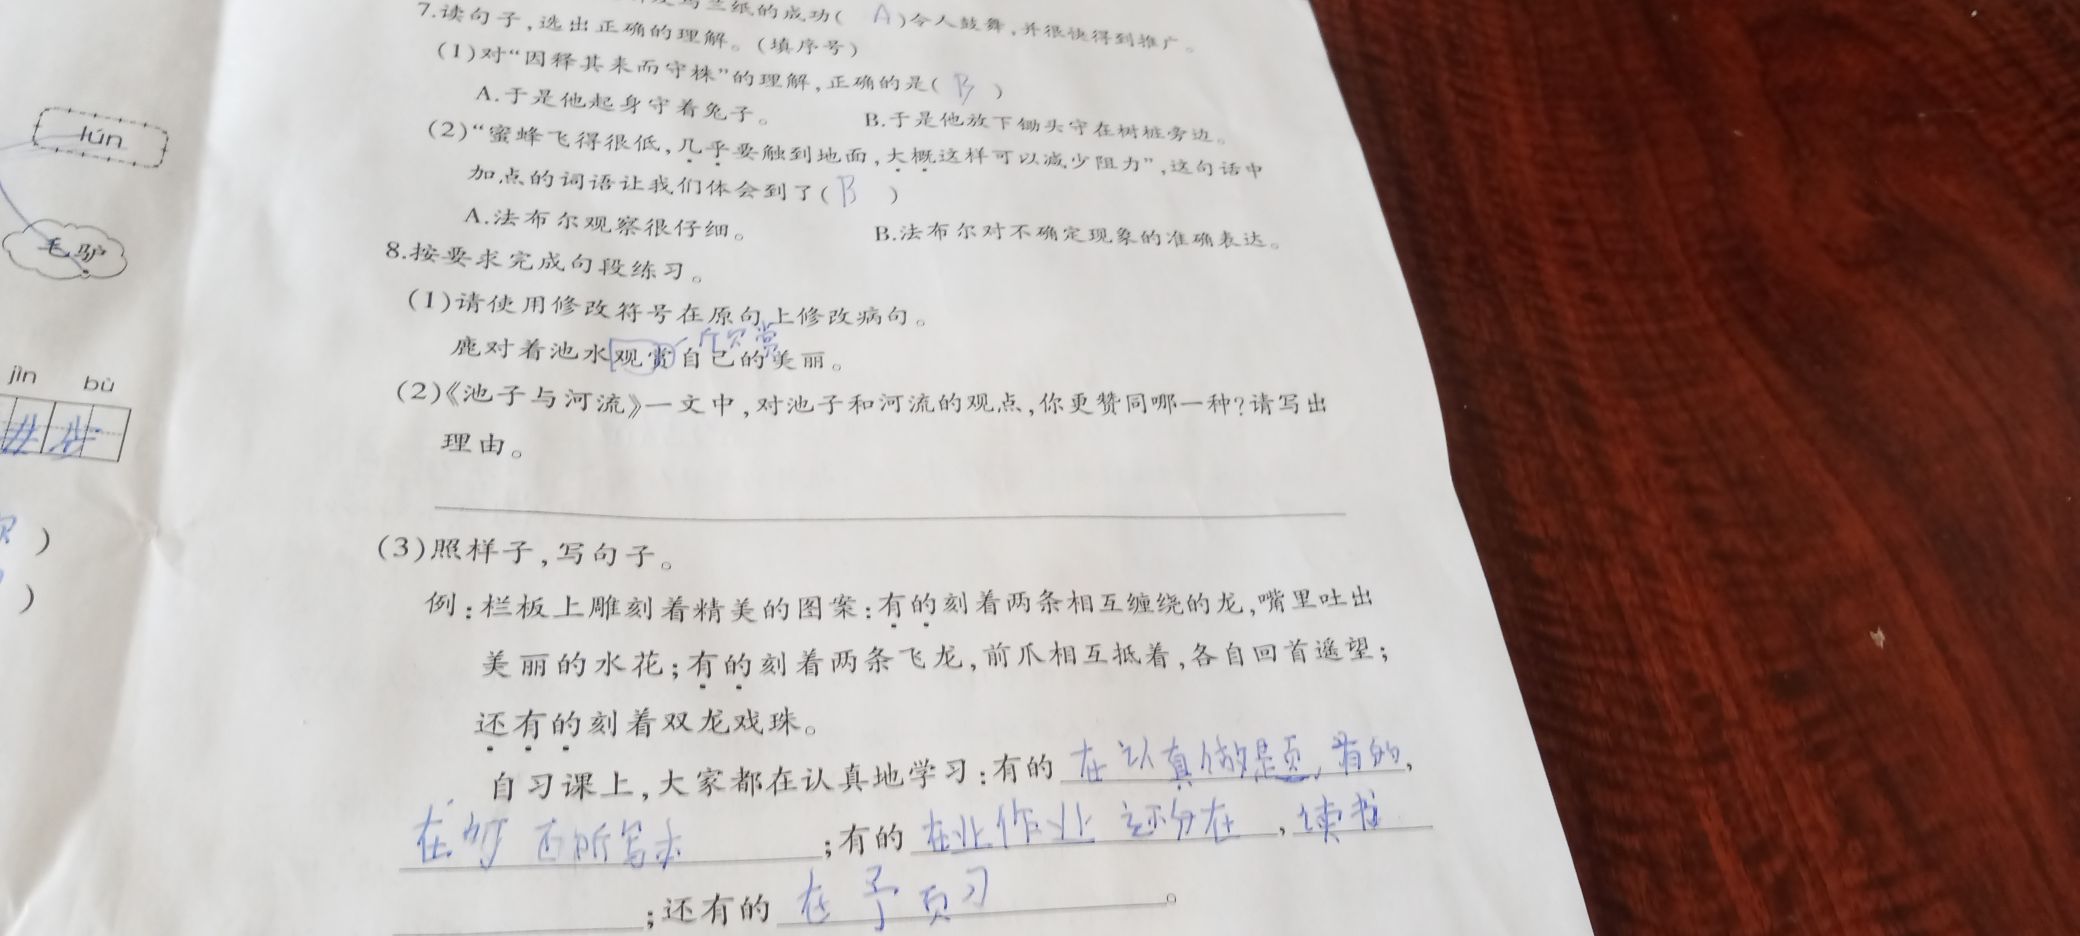 兰纸的成功( A )令人鼓舞,并很快得到推广。
7.读句子,选出正确的理解。(填序号)
(1)对“因释其耒而守株”的理解,正确的是( B )
A.于是他起身守着兔子。 B.于是他放下锄头守在树桩旁边。
(2)“蜜蜂飞得很低,几乎要触到地面,大概这样可以减少阻力”,这句话中
加点的词语让我们体会到了( B )
A.法布尔观察很仔细。 B.法布尔对不确定现象的准确表达。
8.按要求完成句段练习。
(1)请使用修改符号在原句上修改病句。
欣赏
鹿对着池水观赏自己的美丽。
(2)《池子与河流》一文中,对池子和河流的观点,你更赞同哪一种?请写出
理由。
(3)照样子,写句子。
例:栏板上雕刻着精美的图案:有的刻着两条相互缠绕的龙,嘴里吐出
美丽的水花;有的刻着两条飞龙,前爪相互抵着,各自回首遥望;
还有的刻着双龙戏珠。
自习课上,大家都在认真地学习:有的 在认真做是页,有的,
在 ;有的 作业 在,读书
;还有的 在予页习。
lún
毛驴
jìn bù